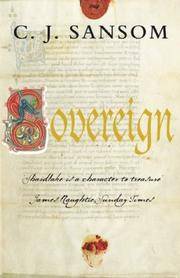 C. J. SANSOM
Sovereign
Shardlake is a character to treasure
James Naughtie, Sunday Times